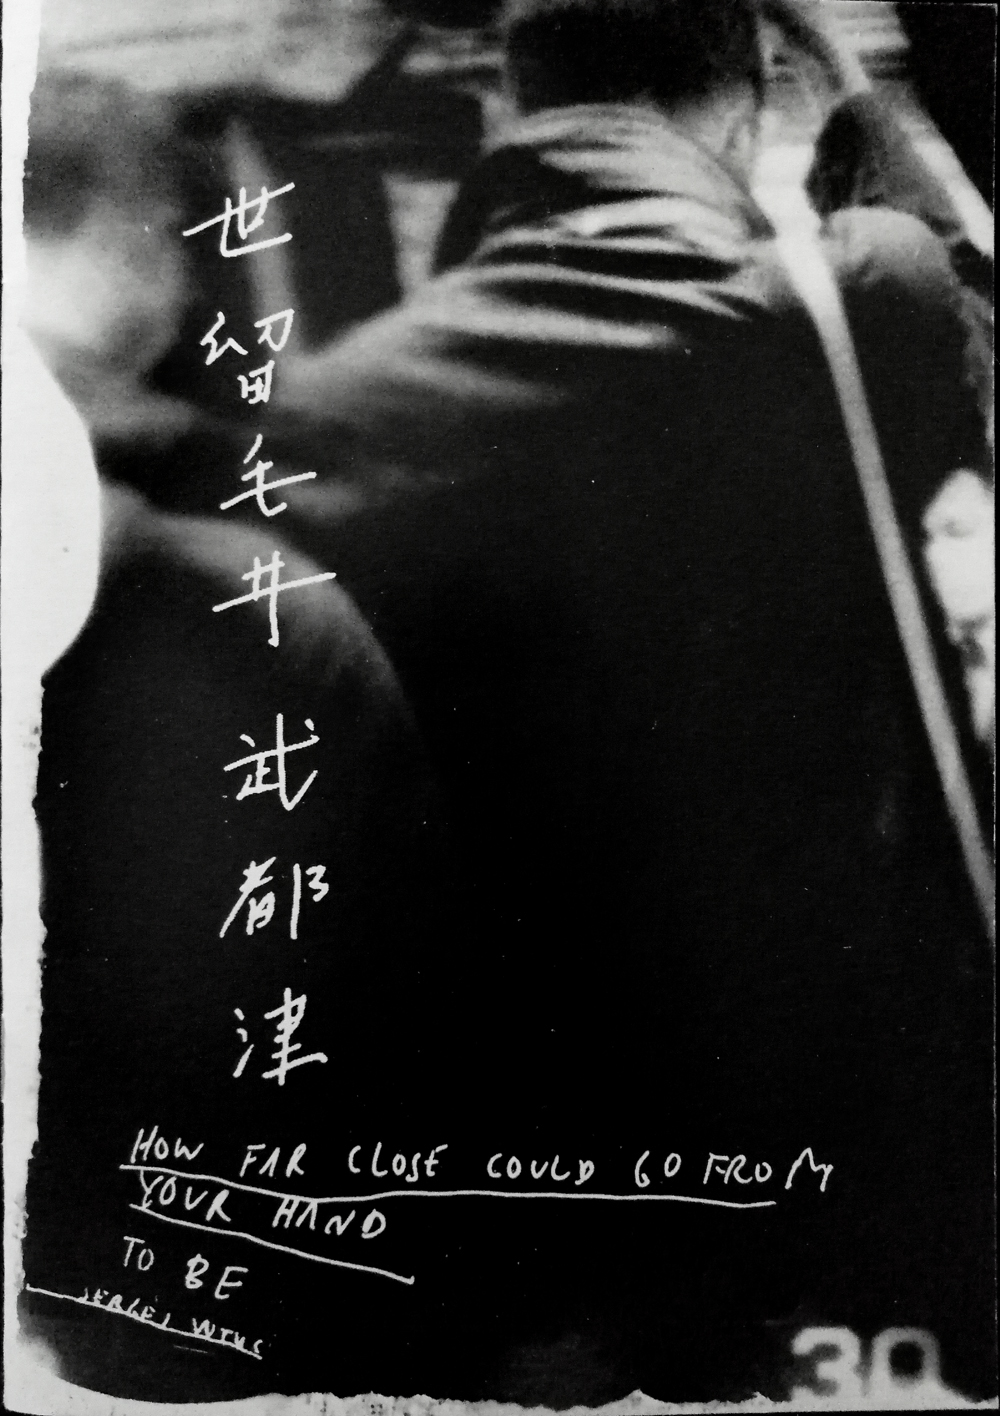 世留毛井 武都津
HOW FAR CLOSE COULD GO FROM
YOUR HAND
TO BE
SERGEJ
30